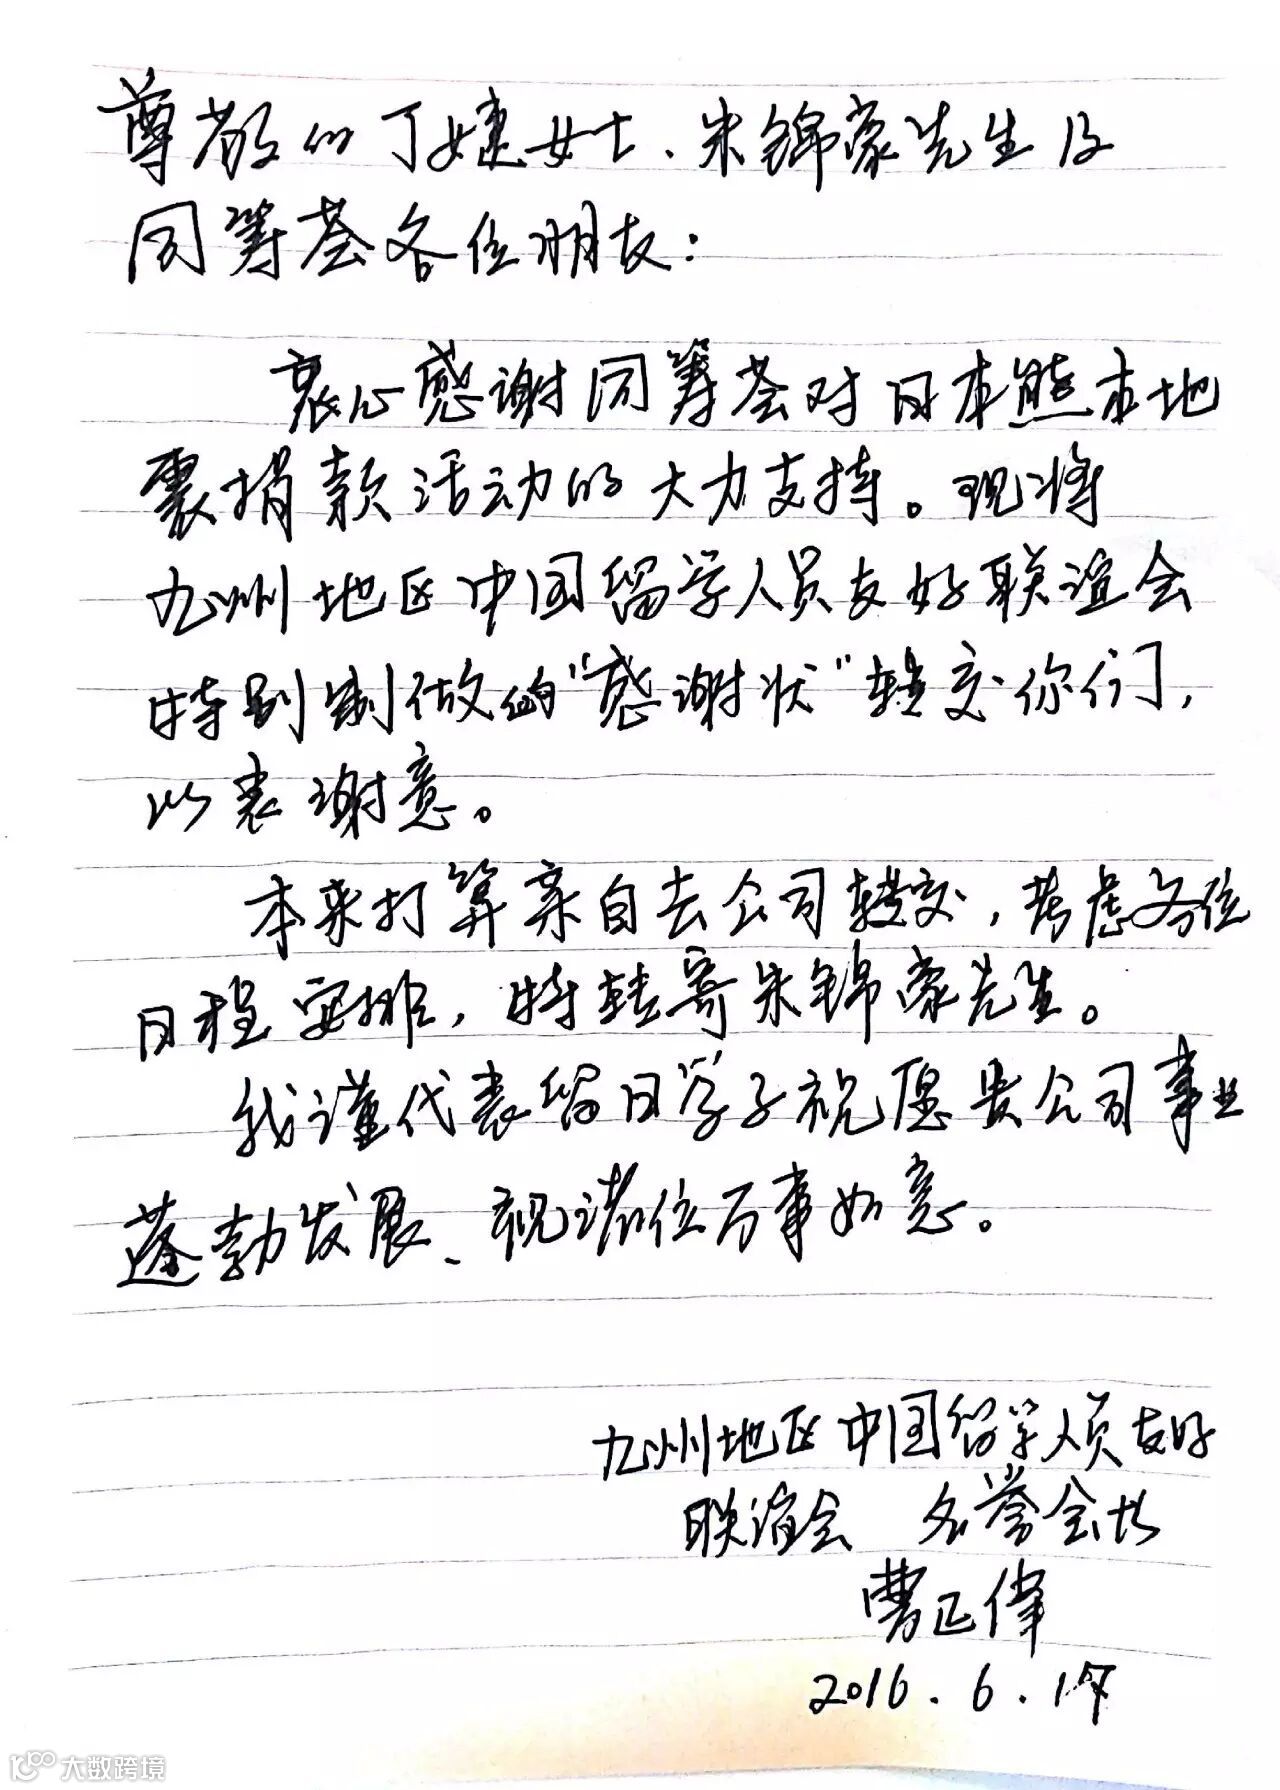 尊敬的丁婕女士、朱锦豪先生及
同筹荟各位朋友：
衷心感谢同筹荟对日本熊本地
震捐款活动的大力支持。现将
九州地区中国留学人员友好联谊会
特别制做的“感谢状”转交你们，
以表谢意。
本来打算亲自去公司转交，考虑各位
日程安排，特转寄朱锦豪先生。
我谨代表留日学子祝愿贵公司事业
蓬勃发展、祝诸位万事如意。
九州地区中国留学人员友好
联谊会 名誉会长
曹正伟
2016.6.17
大数跨境